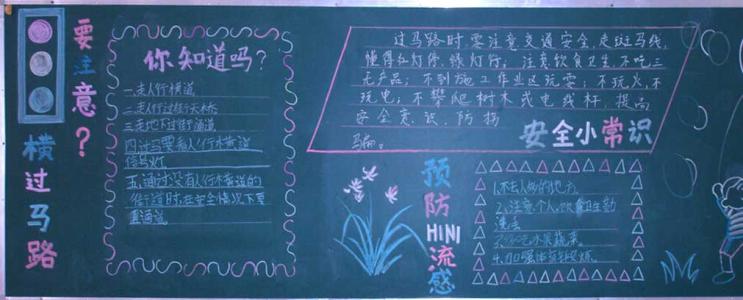 要注意?
横过马路
你知道吗?
一.走人行横道
二.走人行过街天桥
三.走地下过街通道
四.过马路要看人行横道
信号灯
五.通过没有人行横道的
街道时,在安全情况下
直通过
过马路时,要注意交通安全,走斑马线,
懂得红灯停、绿灯行;注意饮食卫生,不吃三
无产品;不到施工作业区玩耍;不玩火,不
玩电;不攀爬树木或电线杆,提高
安全意识,防拐
骗。
安全小常识
预防H1N1流感
1.不去人多的地方
2.注意个人饮食卫生勤
洗手
3.多吃水果蔬菜。
4.加强体育锻炼。